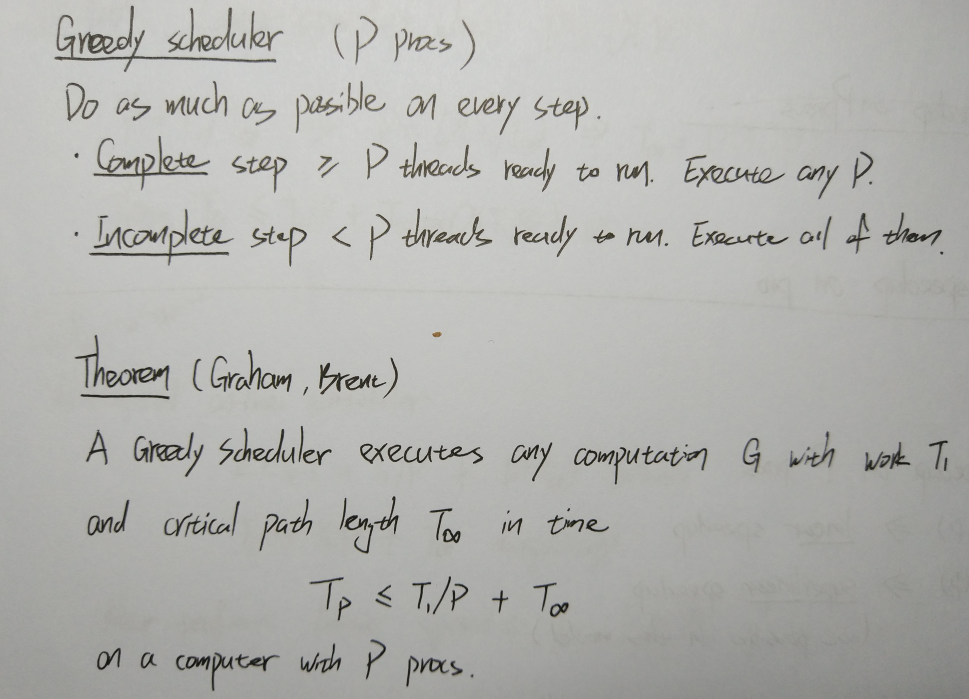 Greedy scheduler (P procs)
Do as much as possible on every step.
· Complete step ≥ P threads ready to run. Execute any P.
· Incomplete step < P threads ready to run. Execute all of them.
Theorem (Graham, Brent)
A Greedy scheduler executes any computation G with work T₁
and critical path length T∞ in time
Tₚ ≤ T₁/P + T∞
on a computer with P procs.